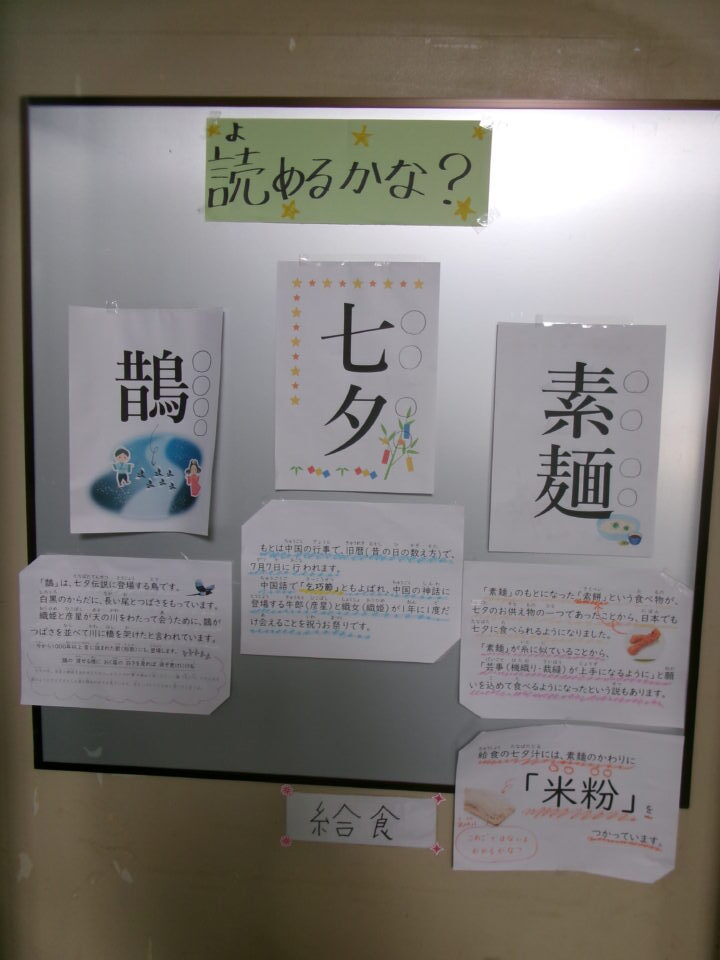 読めるかな？
よ
鵲
七夕
素麺
「鵲」は、七夕伝説に登場する鳥です。
白黒のからだに、長い尾とつばさをもっています。
織姫と彦星が天の川をわたって会うために、鵲が
つばさを並べて川に橋を架けたと言われています。
今から1000年以上 昔に詠まれた歌(和歌)にも、登場します。
鵲の 渡せる橋に おく霜の 白きを見れば 夜ぞ更けにける
もとは中国の行事で、旧暦(昔の日の数え方)で、
7月7日に行われます。
中国語で「乞巧節」ともよばれ、中国の神話に
登場する牛郎(彦星)と織女(織姫)が1年に1度だ
け会えることを祝うお祭りです。
「素麺」のもとになった「索餅」という食べ物が、
七夕のお供え物の一つであったことから、日本でも
七夕に食べられるようになりました。
「素麺」が糸に似ていることから、
「芸事(機織り・裁縫)が上手になるように」と願
いを込めて食べるようになったという説もあります。
給食の七夕汁には、素麺のかわりに
「米粉」を
つかっています。
給食